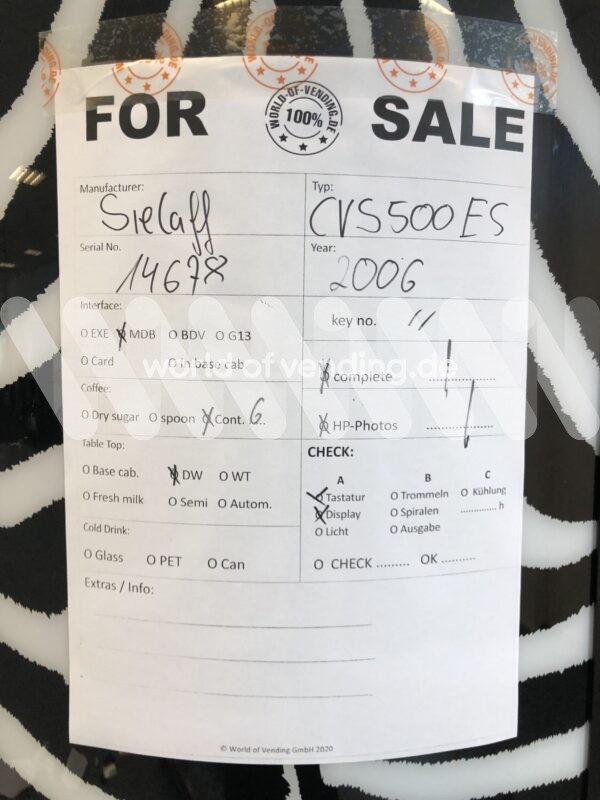 WORLD-OF-VENDING.DE
FOR SALE
WORLD-OF-VENDING.DE 100%
Manufacturer: Typ:
Sielaff CVS500ES
Serial No. Year:
14678 2006
Interface: key no. 11
O EXE O MDB O BDV O G13
O Card O in base cab.
world of vending.de
O complete ..................
Coffee:
O Dry sugar O spoon O Cont. 6..
O HP-Photos ..................
Table Top: CHECK:
O Base cab. O DW O WT
A B C
O Fresh milk O Semi O Autom.
O Tastatur O Trommeln O Kühlung
O Display O Spiralen .............. h
O Licht O Ausgabe
Cold Drink:
O Glass O PET O Can
O CHECK ......... OK ..........
Extras / Info:
© World of Vending GmbH 2020